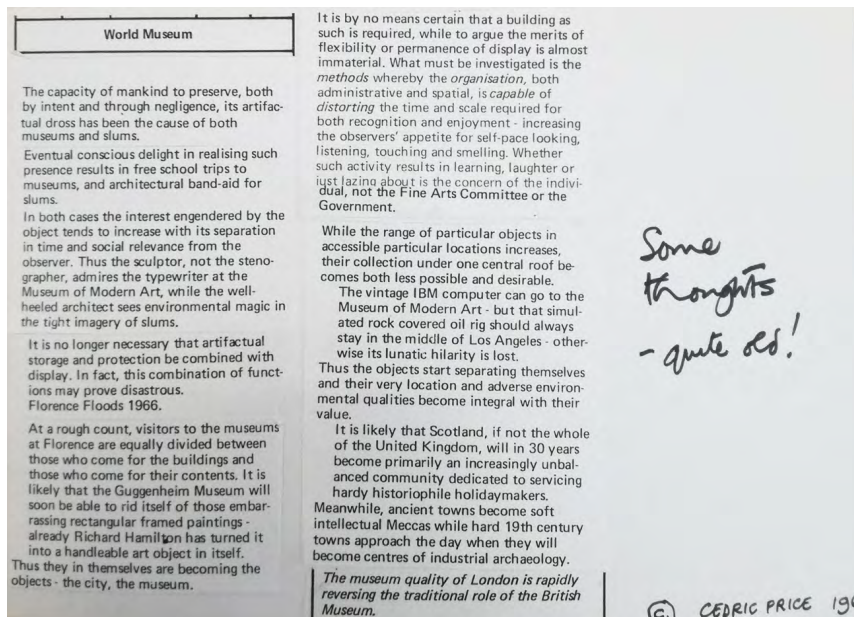 World Museum
The capacity of mankind to preserve, both
by intent and through negligence, its artifac-
tual dross has been the cause of both
museums and slums.
Eventual conscious delight in realising such
presence results in free school trips to
museums, and architectural band-aid for
slums.
In both cases the interest engendered by the
object tends to increase with its separation
in time and social relevance from the
observer. Thus the sculptor, not the steno-
grapher, admires the typewriter at the
Museum of Modern Art, while the well-
heeled architect sees environmental magic in
the tight imagery of slums.
It is no longer necessary that artifactual
storage and protection be combined with
display. In fact, this combination of funct-
ions may prove disastrous.
Florence Floods 1966.
At a rough count, visitors to the museums
at Florence are equally divided between
those who come for the buildings and
those who come for their contents. It is
likely that the Guggenheim Museum will
soon be able to rid itself of those embar-
rassing rectangular framed paintings -
already Richard Hamilton has turned it
into a handleable art object in itself.
Thus they in themselves are becoming the
objects - the city, the museum.
It is by no means certain that a building as
such is required, while to argue the merits of
flexibility or permanence of display is almost
immaterial. What must be investigated is the
methods whereby the organisation, both
administrative and spatial, is capable of
distorting the time and scale required for
both recognition and enjoyment - increasing
the observers' appetite for self-pace looking,
listening, touching and smelling. Whether
such activity results in learning, laughter or
just lazing about is the concern of the indivi-
dual, not the Fine Arts Committee or the
Government.
While the range of particular objects in
accessible particular locations increases,
their collection under one central roof be-
comes both less possible and desirable.
The vintage IBM computer can go to the
Museum of Modern Art - but that simul-
ated rock covered oil rig should always
stay in the middle of Los Angeles - other-
wise its lunatic hilarity is lost.
Thus the objects start separating themselves
and their very location and adverse environ-
mental qualities become integral with their
value.
It is likely that Scotland, if not the whole
of the United Kingdom, will in 30 years
become primarily an increasingly unbal-
anced community dedicated to servicing
hardy historiophile holidaymakers.
Meanwhile, ancient towns become soft
intellectual Meccas while hard 19th century
towns approach the day when they will
become centres of industrial archaeology.
The museum quality of London is rapidly
reversing the traditional role of the British
Museum.
Some
thoughts
- quite old!
© CEDRIC PRICE